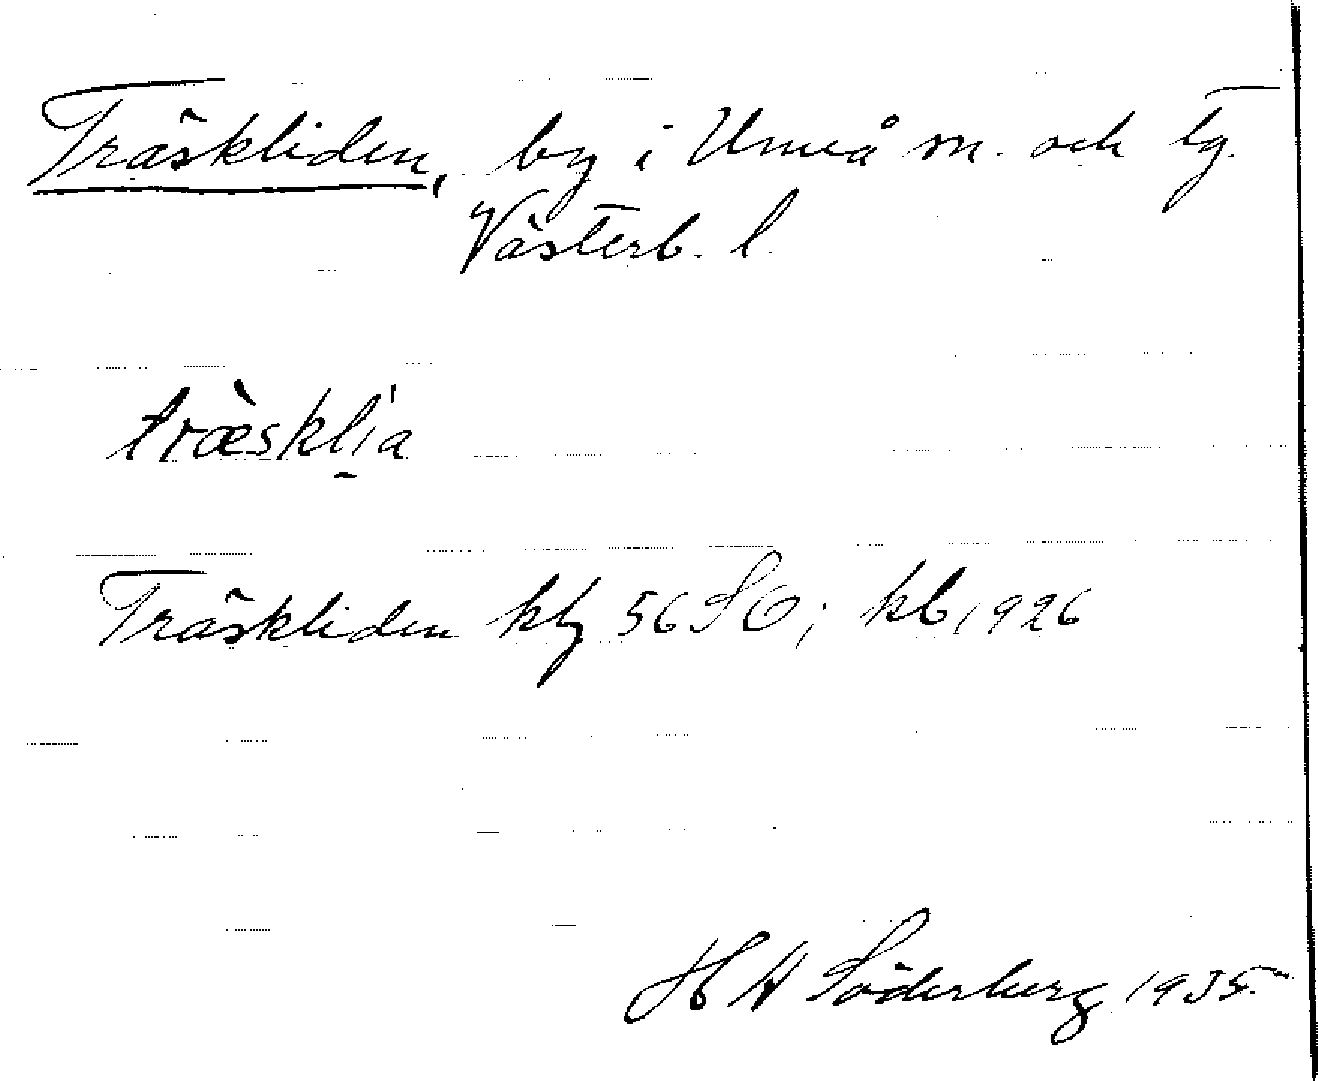 Träskliden, by i Umeå sn. och tg.
Västerb. l.
træ̀sklı̱́a
Träskliden kbg 56 SO; kb 1926
H W Söderberg 1935.